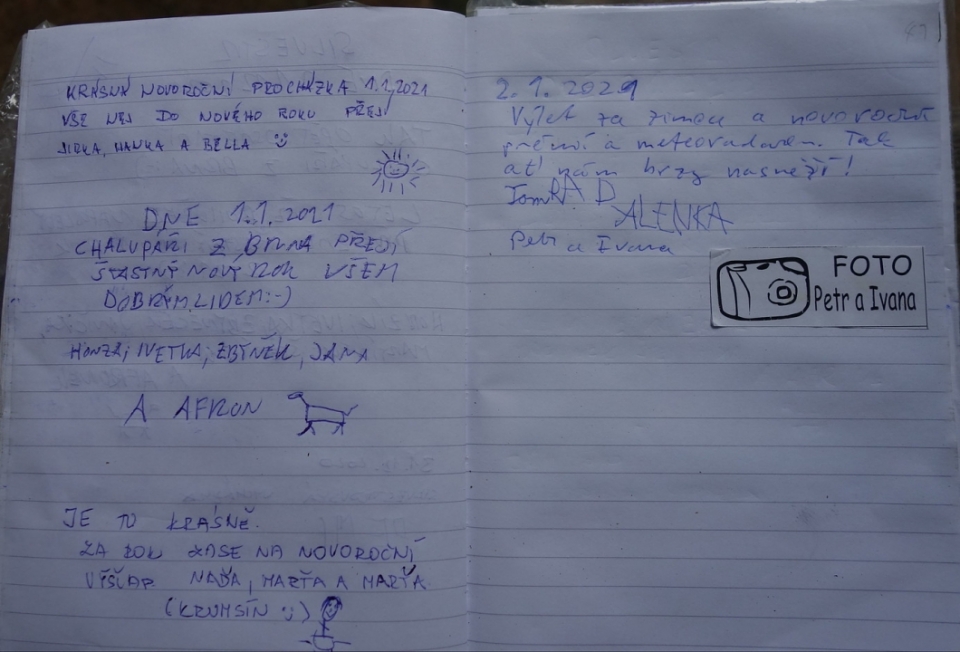 KRÁSNÁ NOVOROČNÍ PROCHÁZKA 1.1.2021
VŠE NEJ DO NOVÉHO ROKU PŘEJÍ
JIRKA, HANKA A BELLA
DNE 1.1.2021
CHALUPÁŘI Z BRNA PŘEJÍ
ŠŤASTNÝ NOVÝ ROK VŠEM
DOBRÝM LIDEM :-)
HONZA, IVETKA, ZBYNĚK, JANA
A AFRON
JE TU KRÁSNĚ.
ZA ROK ZASE NA NOVOROČNÍ
VÝŠLAP NAĎA, MARŤA A MARŤA
(KRUMSÍN :))
47
2.1.2021
Výlet za zimou a novoroční
a meteoradarem. Tak
ať nám brzy nasněží!
ALENKA
Petr a Ivana
FOTO
Petr a Ivana